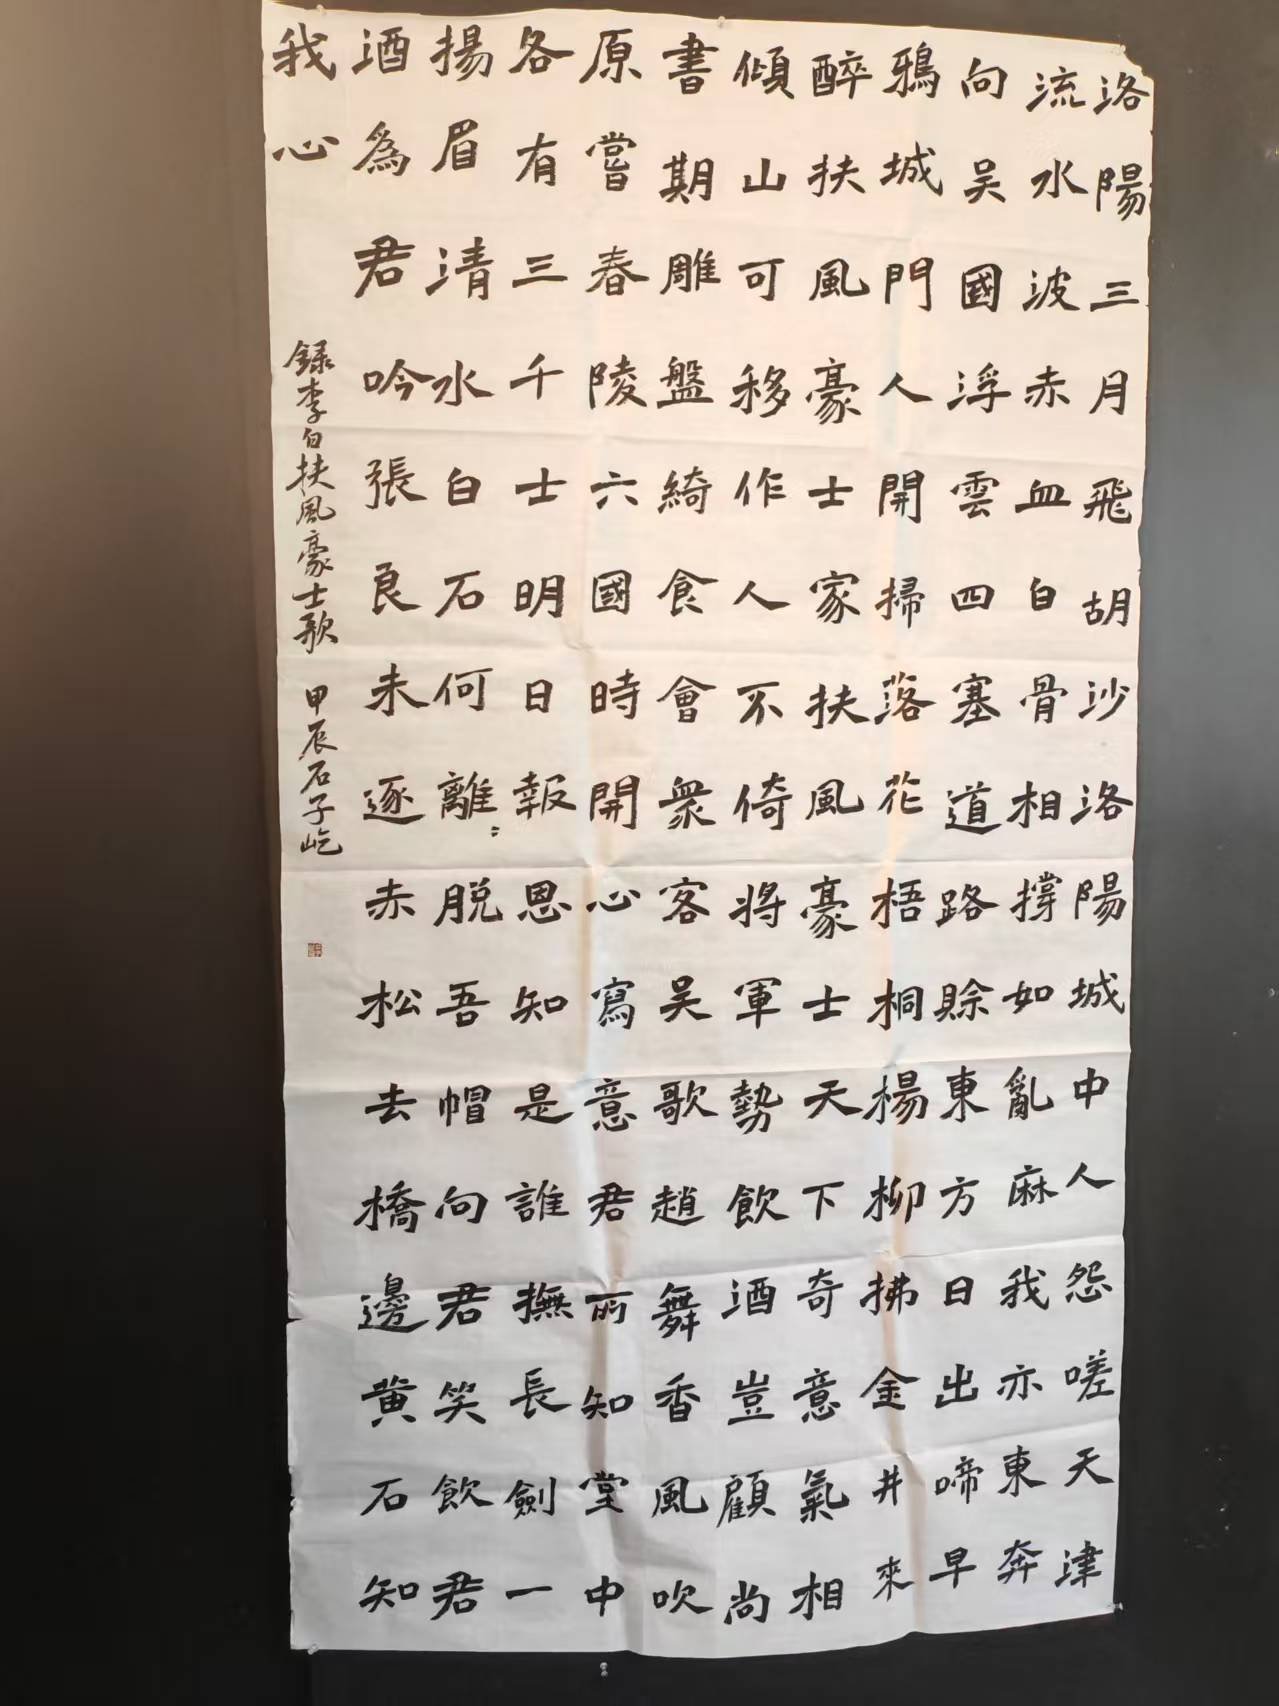 洛陽三月飛胡沙洛陽城中人怨嗟天津
流水波赤血白骨相撐如亂麻我亦東奔
向吴國浮雲四塞道路賒東方日出啼早
鴉城門人開掃落花梧桐楊柳拂金井來
醉扶風豪士家扶風豪士天下奇意氣相
傾山可移作人不倚將軍勢飲酒豈顧尚
書期雕盤綺食會衆客吴歌趙舞香風吹
原嘗春陵六國時開心寫意君所知堂中
各有三千士明日報恩知是誰撫長劍一
揚眉清水白石何離〻脱吾帽向君笑飲君
酒爲君吟張良未逐赤松去橋邊黄石知
我心
録李白扶風豪士歌 甲辰石子屹